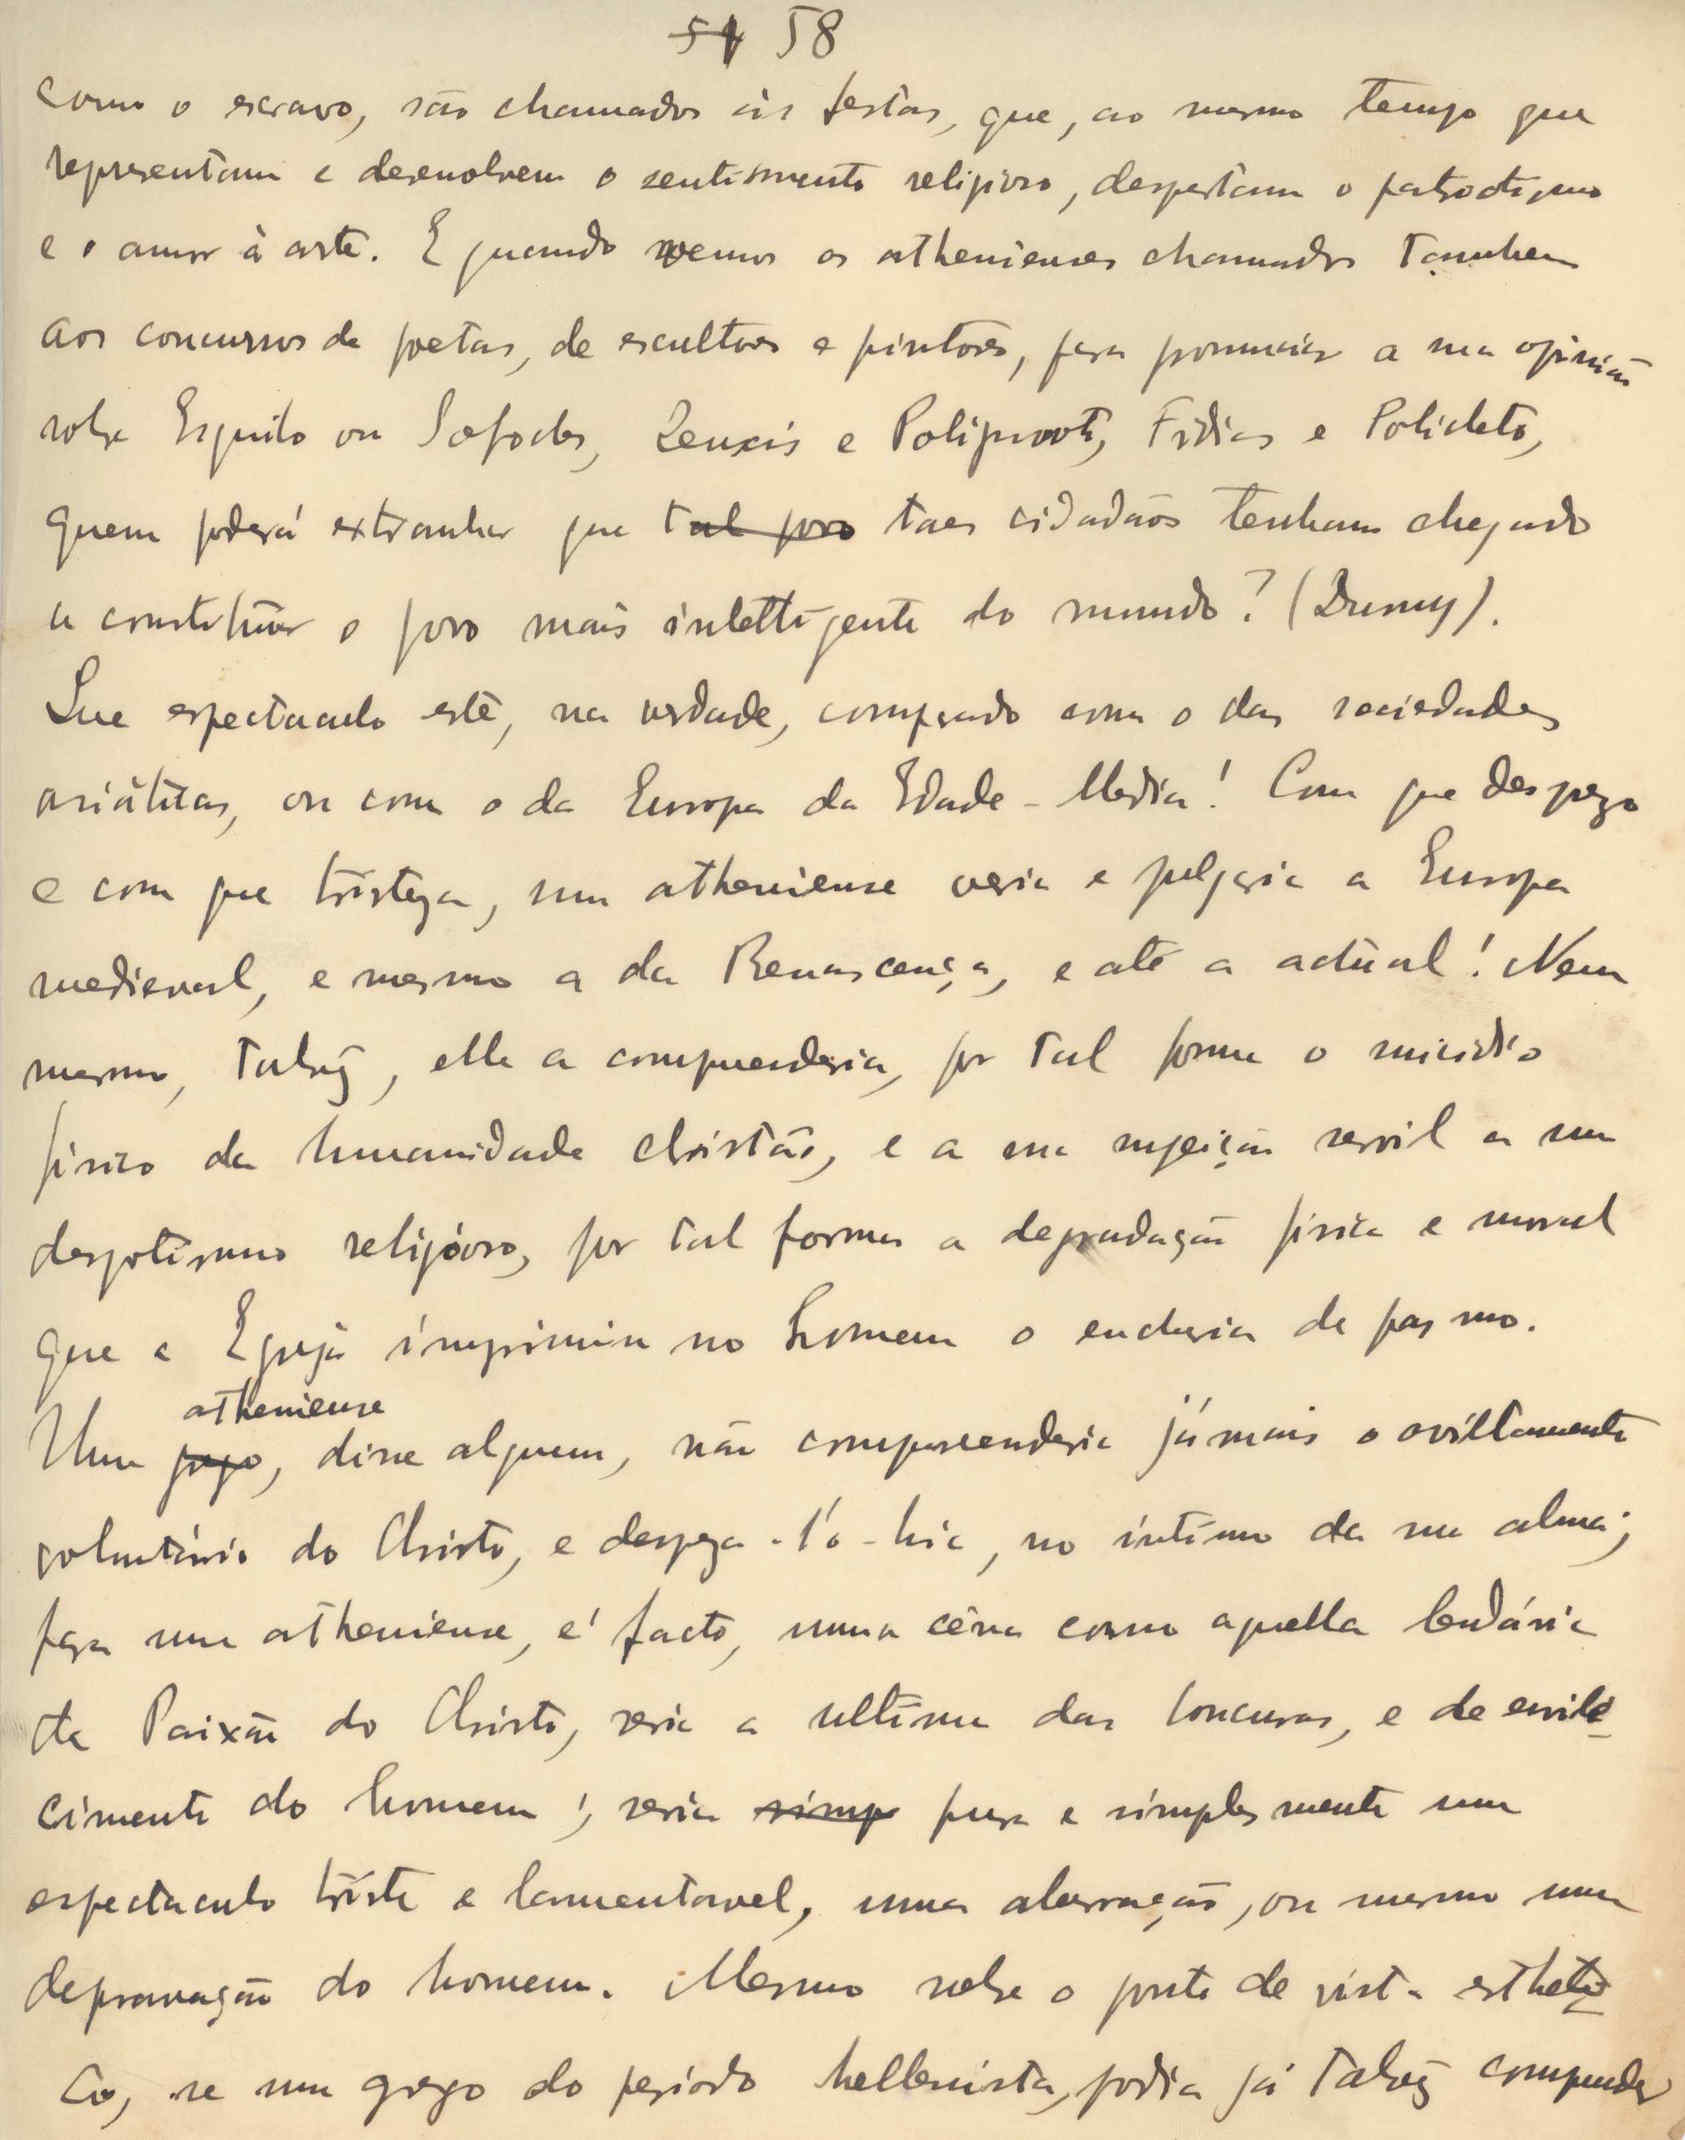 54 58
como o escravo, são chamados às festas, que, ao mesmo tempo que
representam e desenvolvem o sentimento religioso, despertam o patriotismo
e o amor à arte. E quando vemos os athenienses chamados tambem
aos concursos de poetas, de escultores e pintores, para pronunciar a sua opinião
sobre Esquilo ou Sofocles, Zeuxis e Polignoto, Fidias e Policleto,
quem poderá extranhar que tal povo taes cidadãos tenham chegado
a constituir o povo mais intelligente do mundo? (Duruy).
Que espectaculo este, na verdade, comparado com o das sociedades
asiáticas, ou com o da Europa da Edade-Media! Com que desprezo
e com que tristeza, um atheniense veria e julgaria a Europa
medieval, e mesmo a da Renascença, e até a actual! Nem
mesmo, talvez, elle a comprenderia, por tal forma o suicidio
fisico da humanidade christã, e a sua sujeição servil a um
despotismo religioso, por tal forma a degradação fisica e moral
que a Egreja imprimiu no homem o encheria de pasmo.
atheniense
Um grego, disse alguem, não compreenderia jámais o aviltamento
voluntário do Christo, e despreza-l'o-hia, no intimo da sua alma;
para um atheniense, é facto, uma cêna como aquella lendária
da Paixão do Christo, seria a ultima das loucuras, e de envile-
cimento do homem; seria simp pura e simplesmente um
espectaculo triste e lamentavel, uma aberração, ou mesmo uma
depravação do homem. Mesmo sobre o ponto de vista estheti-
co, se um grego do periodo hellenista, podia já talvez comprender